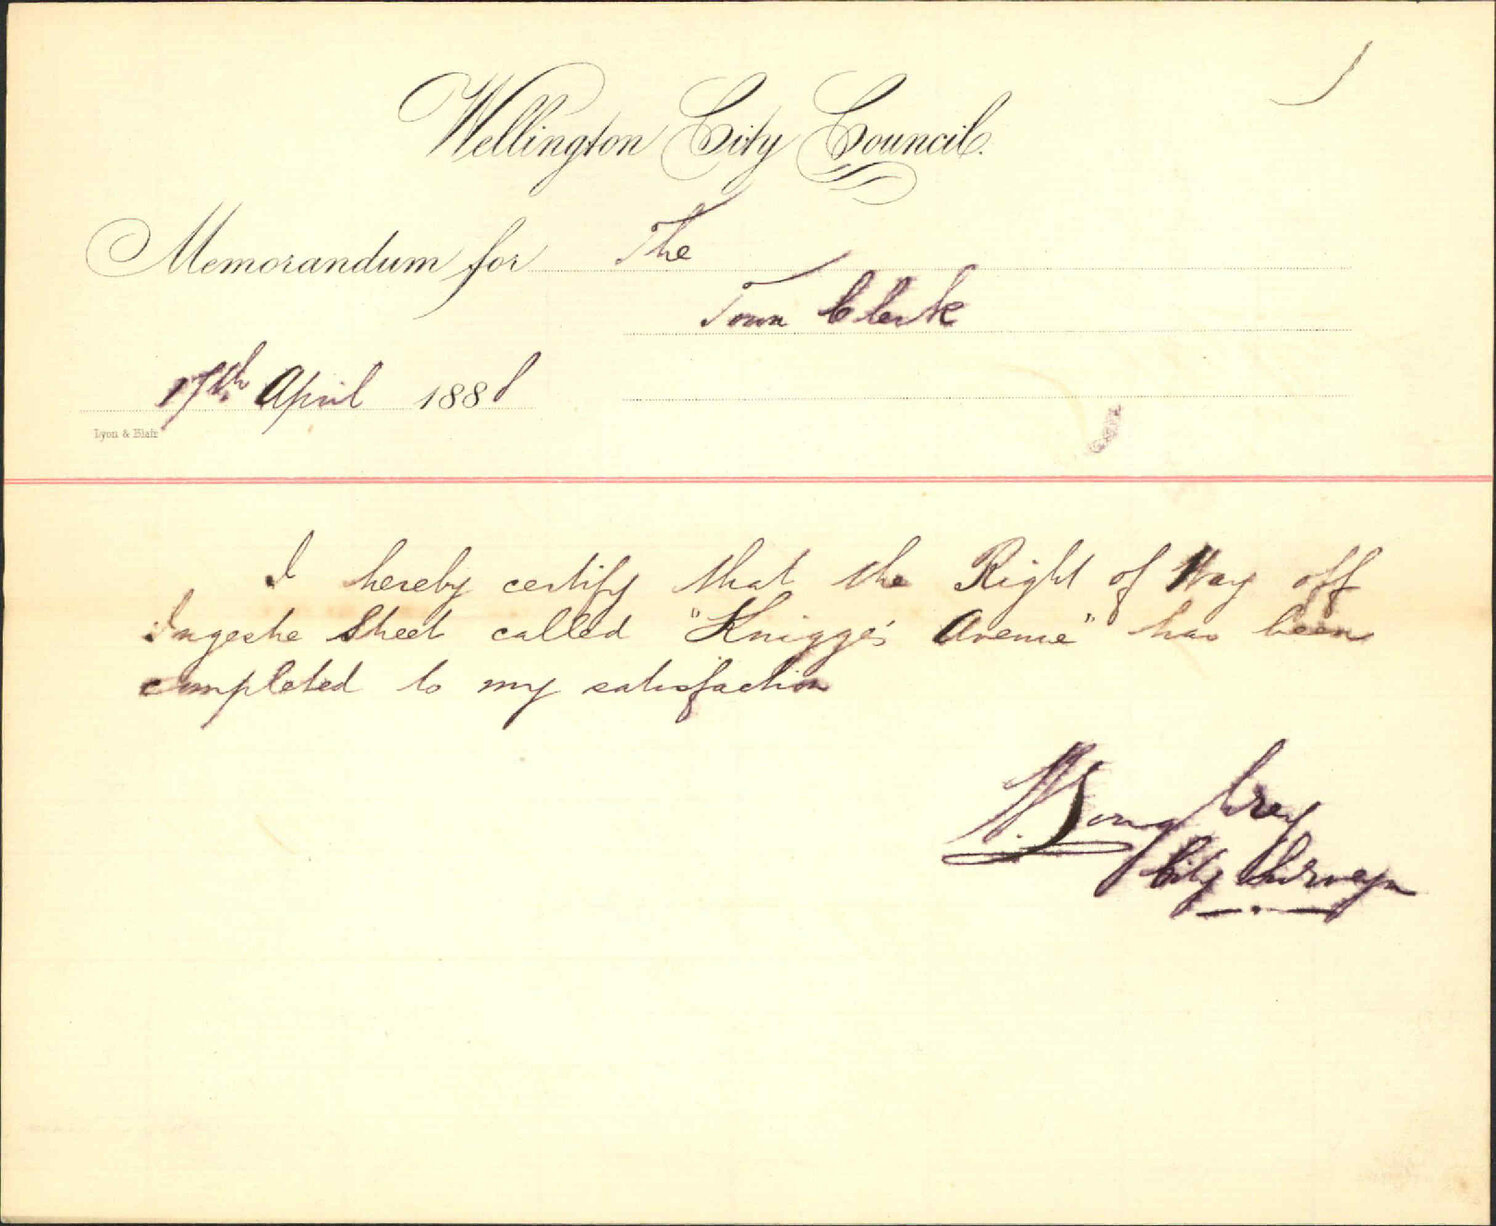 Wellington City Council.
Memorandum for The
Town Clerk
17th April 1888
Lyon & Blair
I hereby certify that the Right of Way off
Ingestre Street called "Knigge's Avenue" has been
completed to my satisfaction
Loughrey
City Surveyor